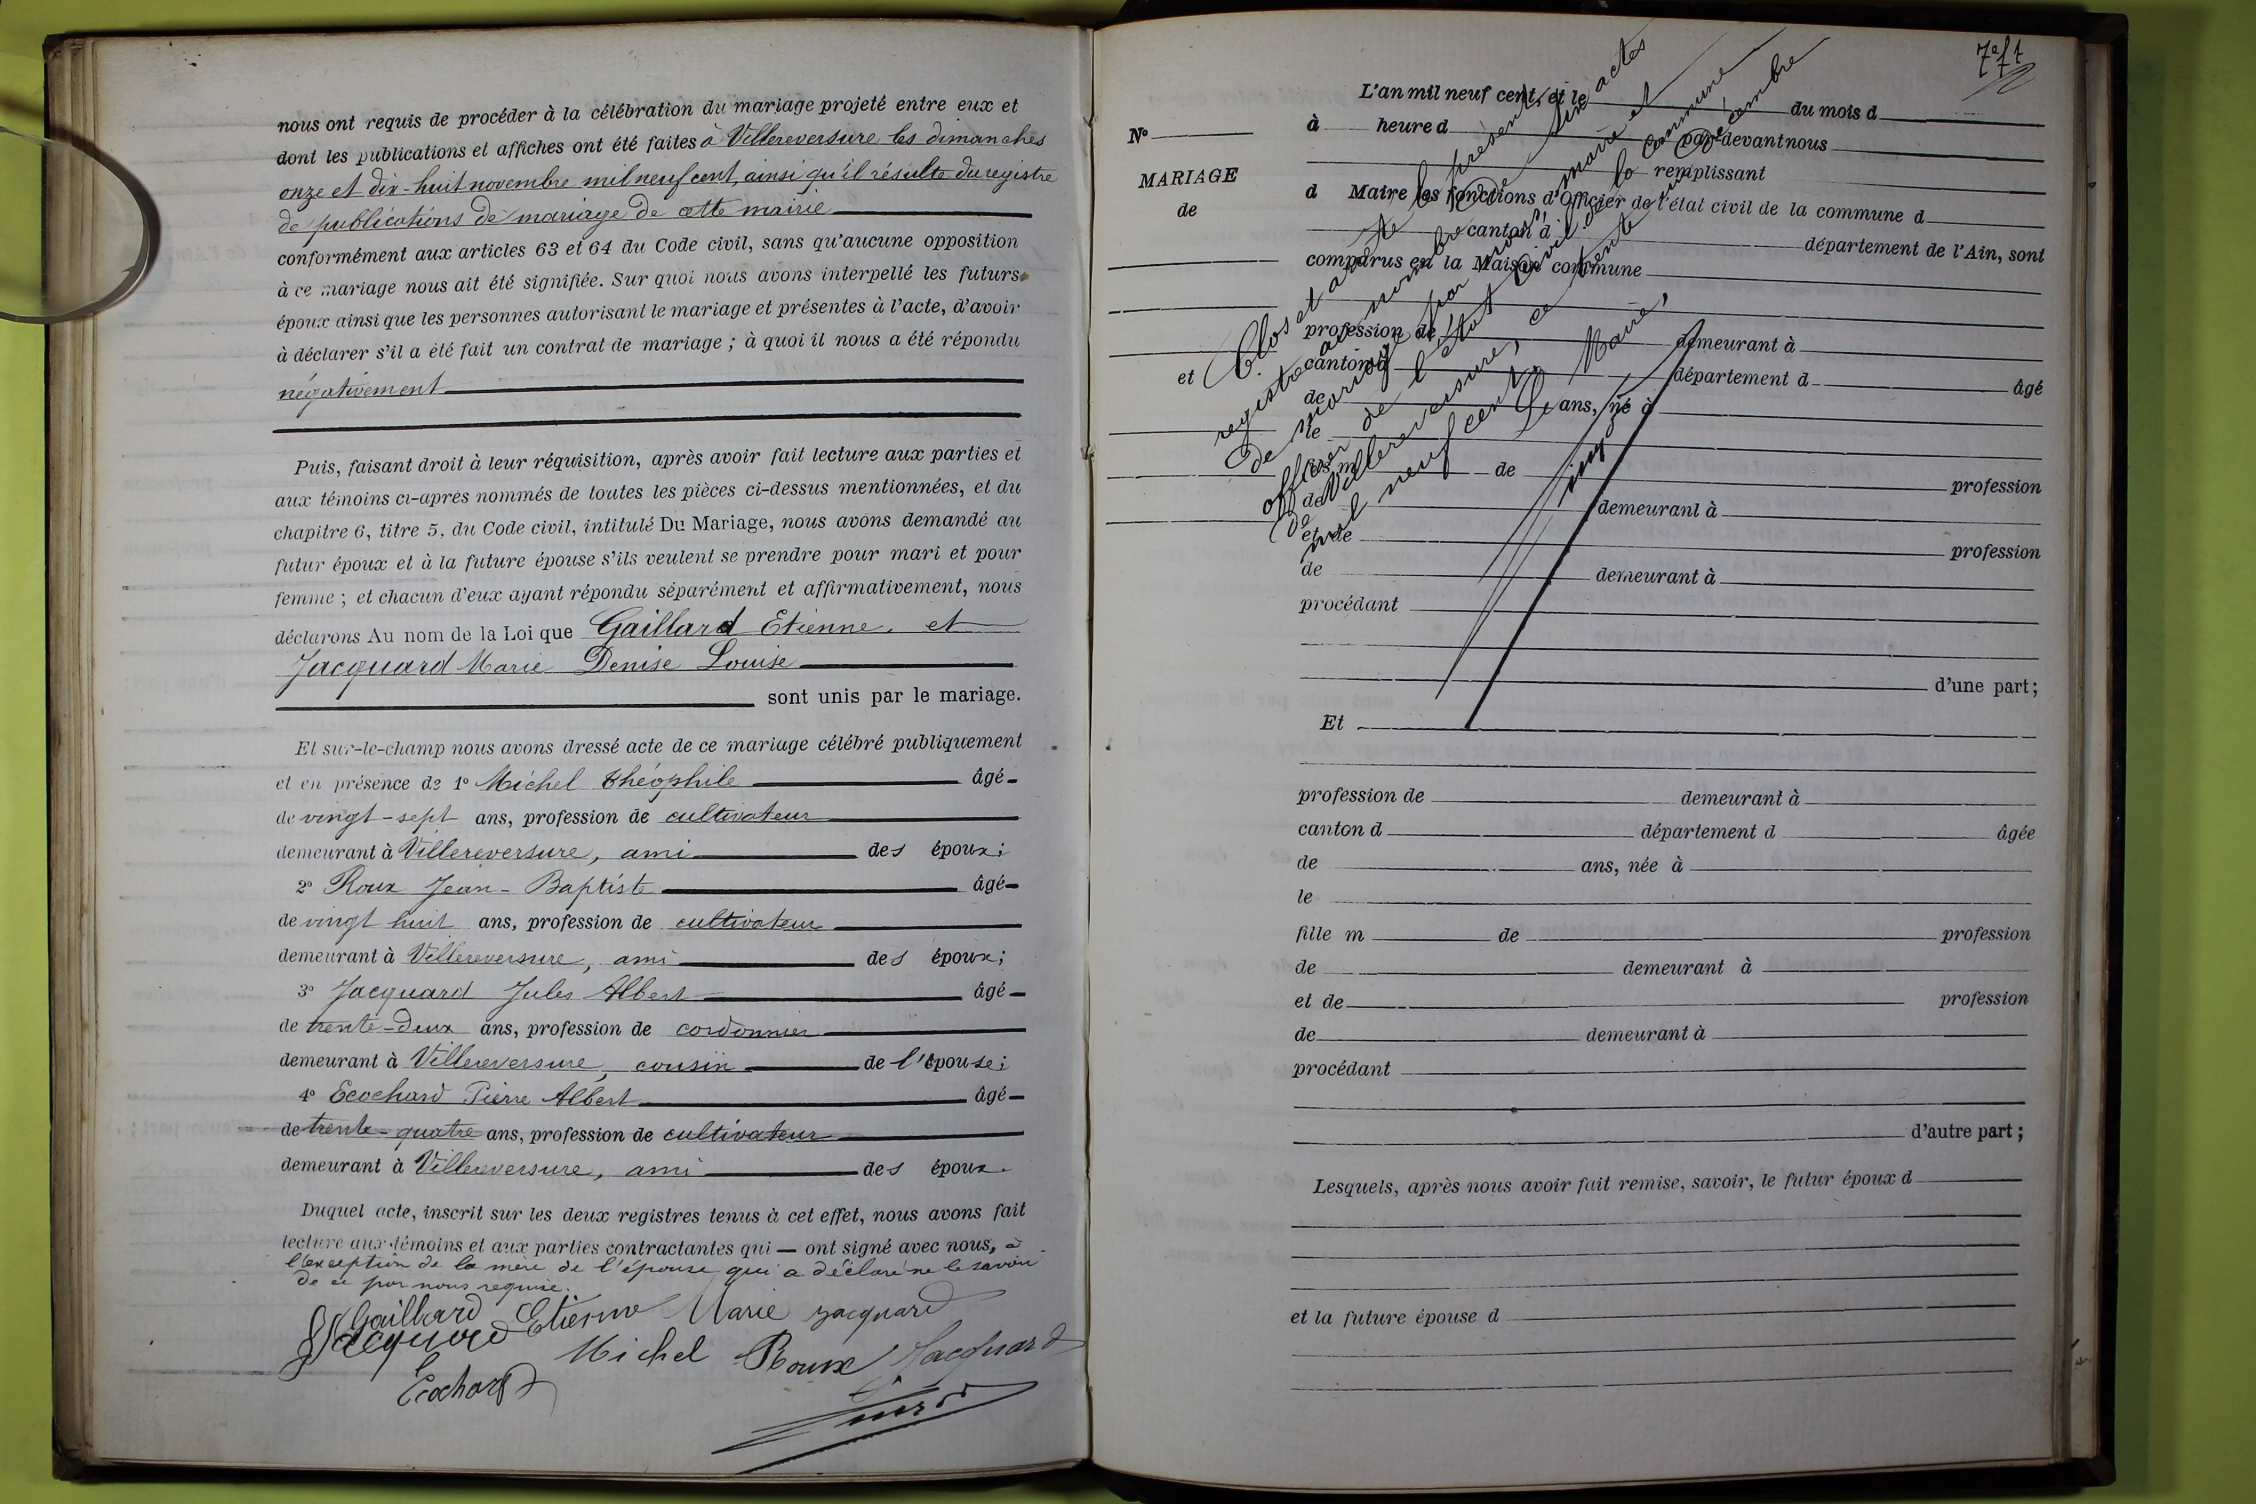 nous ont requis de procéder à la célébration du mariage projeté entre eux et
dont les publications et affiches ont été faites à Villereversure les dimanches
onze et dix-huit novembre mil neuf cent, ainsi qu'il résulte du registre
de publications de mariage de cette mairie
conformément aux articles 63 et 64 du Code civil, sans qu'aucune opposition
à ce mariage nous ait été signifiée. Sur quoi nous avons interpellé les futurs
époux ainsi que les personnes autorisant le mariage et présentes à l'acte, d'avoir
à déclarer s'il a été fait un contrat de mariage ; à quoi il nous a été répondu
négativement
Puis, faisant droit à leur réquisition, après avoir fait lecture aux parties et
aux témoins ci-après nommés de toutes les pièces ci-dessus mentionnées, et du
chapitre 6, titre 5, du Code civil, intitulé Du Mariage, nous avons demandé au
futur époux et à la future épouse s'ils veulent se prendre pour mari et pour
femme ; et chacun d'eux ayant répondu séparément et affirmativement, nous
déclarons Au nom de la Loi que Gaillard Etienne, et
Jacquard Marie Denise Louise
sont unis par le mariage.
Et sur-le-champ nous avons dressé acte de ce mariage célébré publiquement
et en présence de 1° Michel Théophile âgé
de vingt-sept ans, profession de cultivateur
demeurant à Villereversure, ami des époux ;
2° Roux Jean-Baptiste âgé
de vingt huit ans, profession de cultivateur
demeurant à Villereversure, ami des époux ;
3° Jacquard Jules Albert âgé
de trente-deux ans, profession de cordonnier
demeurant à Villereversure, cousin de l'épouse ;
4° Ecochard Pierre Albert âgé
de trente-quatre ans, profession de cultivateur
demeurant à Villereversure, ami des époux.
Duquel acte, inscrit sur les deux registres tenus à cet effet, nous avons fait
lecture aux témoins et aux parties contractantes qui — ont signé avec nous, à
l'exception de la mère de l'épouse qui a déclaré ne le savoir
de ce par nous requise.
Gaillard Etienne Marie Jacquard
Jacquard
Michel Roux Jacquard
Ecochard
N°
MARIAGE
de
et
L'an mil neuf cent, et le du mois d
à heure d par devant nous
remplissant
d Maire les fonctions d'Officier de l'état civil de la commune d
canton d département de l'Ain, sont
comparus en la Maison commune
profession de demeurant à
canton d département d âgé
de ans, né à
le
fils m de profession
de demeurant à
et de profession
de demeurant à
procédant
d'une part ;
Et
profession de demeurant à
canton d département d âgée
de ans, née à
le
fille m de profession
de demeurant à
et de profession
de demeurant à
procédant
d'autre part ;
Lesquels, après nous avoir fait remise, savoir, le futur époux d
et la future épouse d
Clos et arrêté le présent
registre au nombre de cinq actes
de mariage par nous, maire et
officier de l'état civil de la commune
de Villereversure, ce trente un Décembre
mil neuf cent. Le Maire,